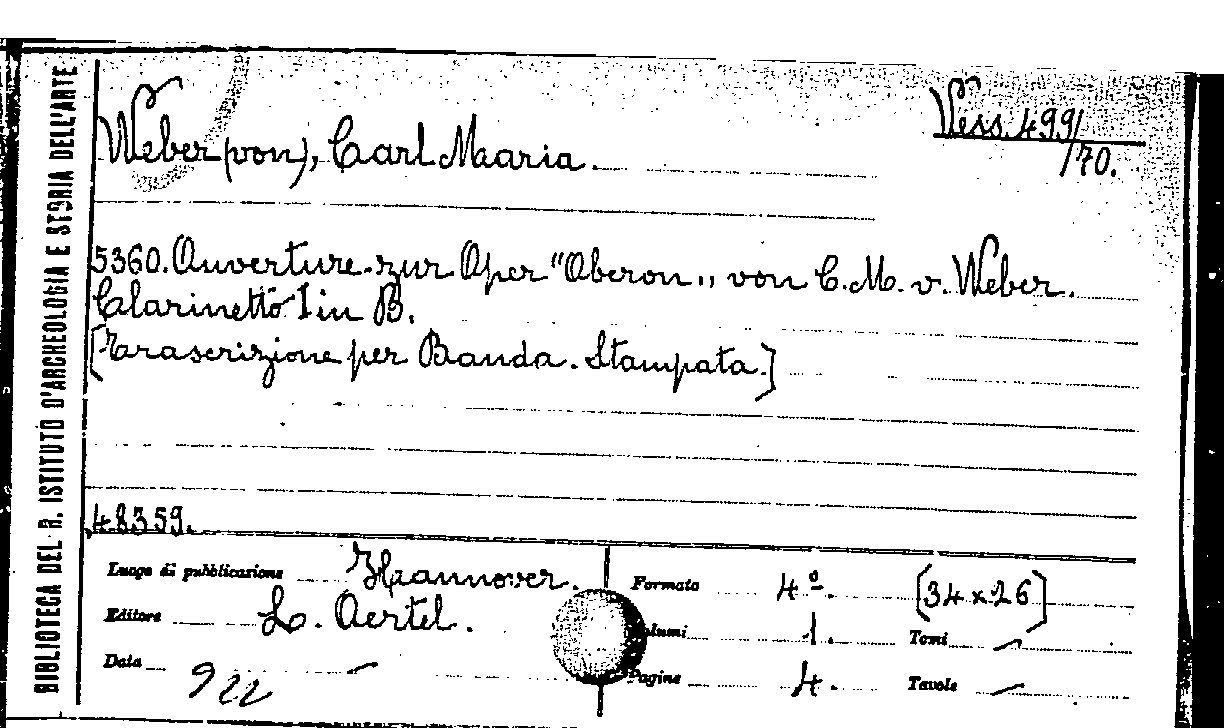 BIBLIOTECA DEL R. ISTITUTO D'ARCHEOLOGIA E STORIA DELL'ARTE
Weber (von), Carl Maria.
Vess. 499/
/70.
5360. Ouverture zur Oper "Oberon,, von C. M. v. Weber.
Clarinetto I in B.
[Trascrizione per Banda. Stampata.]
48359.
Luogo di pubblicazione Hannover.
Editore L. Oertel.
Data
Formato 4º. [34 x 26]
Volumi 1. Tomi –
Pagine 4. Tavole –